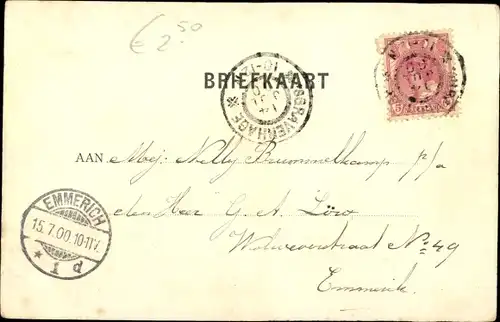 € 2.50
BRIEFKAART
'S GRAVENHAGE
AAN Mej. Nelly Brummelkamp p/a
den Heer G. A. Löw
No 49
Emmerik
EMMERICH
15.7.00.10-11V.
* 1 d
5